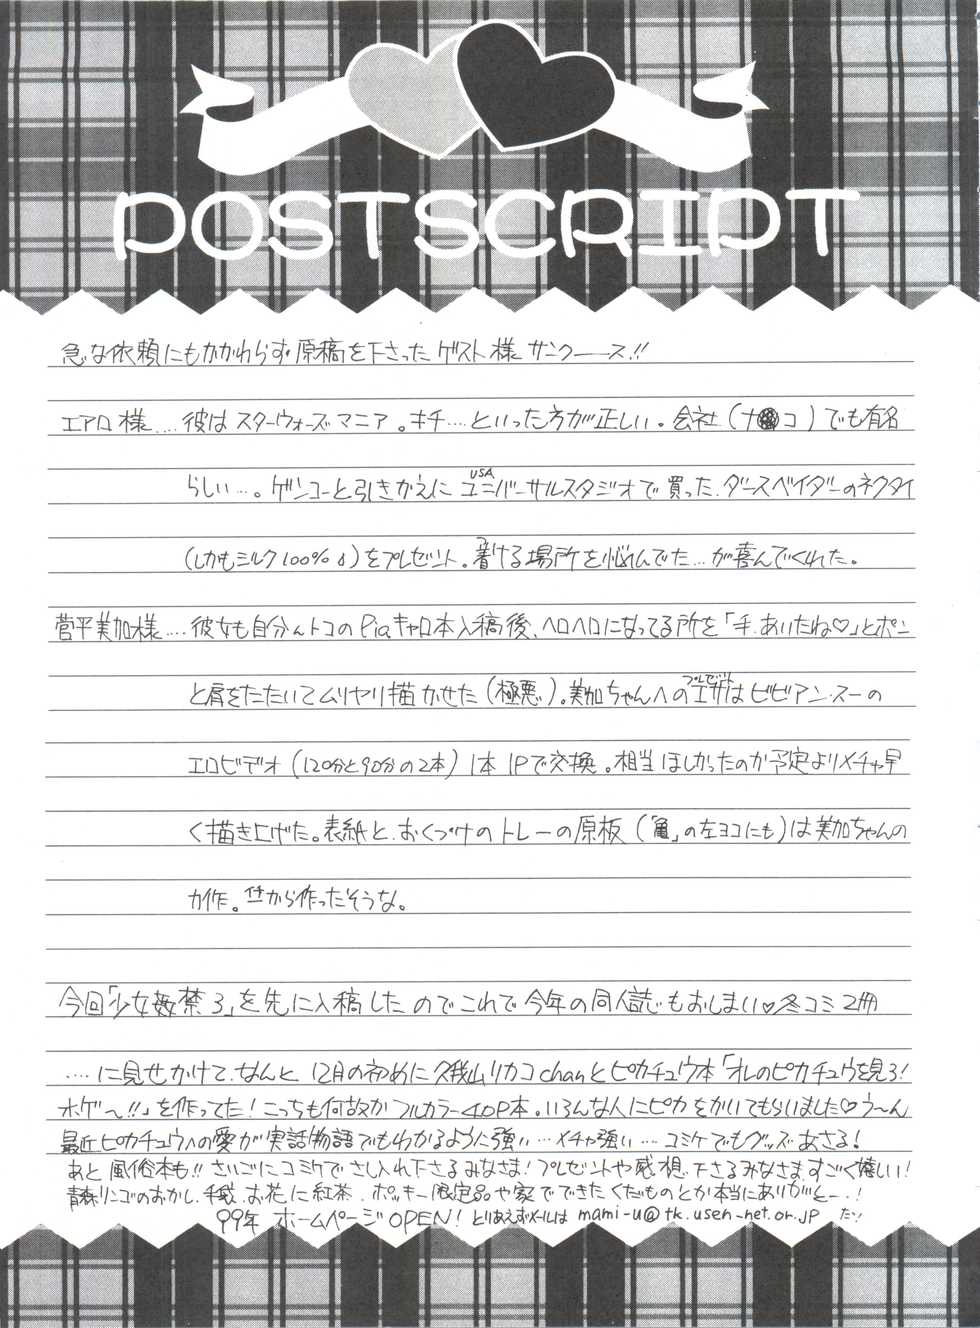 POSTSCRIPT
急な依頼にもかかわらず原稿を下さったゲスト様サンクース!!
エアロ様‥‥彼はスターウォーズマニア。キチ‥‥といった方が正しい。会社(ナ●コ)でも有名
らしい‥‥。ゲンコーと引きかえにUSAユニバーサルスタジオで買った、ダースベイダーのネクタイ
(しかもシルク100%)をプレゼント。着ける場所を悩んでた…が喜んでくれた。
菅平美加様‥‥彼女も自分んトコのPiaキャロ本入稿後、ヘロヘロになってる所を「手、あいたね♡」とポン
と肩をたたいてムリヤリ描かせた(極悪)。美加ちゃんへのエサ(プレゼント)はビビアン・スーの
エロビデオ(120分と90分の2本)1本1Pで交換。相当ほしかったのか予定よりメチャ早
く描き上げた。表紙と、おくづけのトレーの原板(「亀」の左ヨコにも)は美加ちゃんの
力作。から作ったそうな。
今回「少女姦禁3」を先に入稿したのでこれで今年の同人誌もおしまい♡冬コミ2冊
‥‥に見せかけて、なんと12月の初めに久我山リカコchanとピカチュウ本「オレのピカチュウを見ろ!
ホゲ〜!!」を作ってた!こっちも何故かフルカラー40P本。いろんな人にピカをかいてもらいました♡う〜ん
最近ピカチュウへの愛が実話物語でもわかるように強い…メチャ強い…コミケでもグッズあさる!
あと風俗本も!!さいごにコミケでさし入れ下さるみなさま!プレゼントや感想、下さるみなさますごく嬉しい!
青森リンゴのおかし、手袋、お花に紅茶、ポッキー限定品や家でできたくだものとか本当にありがとー!
99年 ホームページOPEN!とりあえずメールは mami-u@tk.usen-net.or.jp だッ